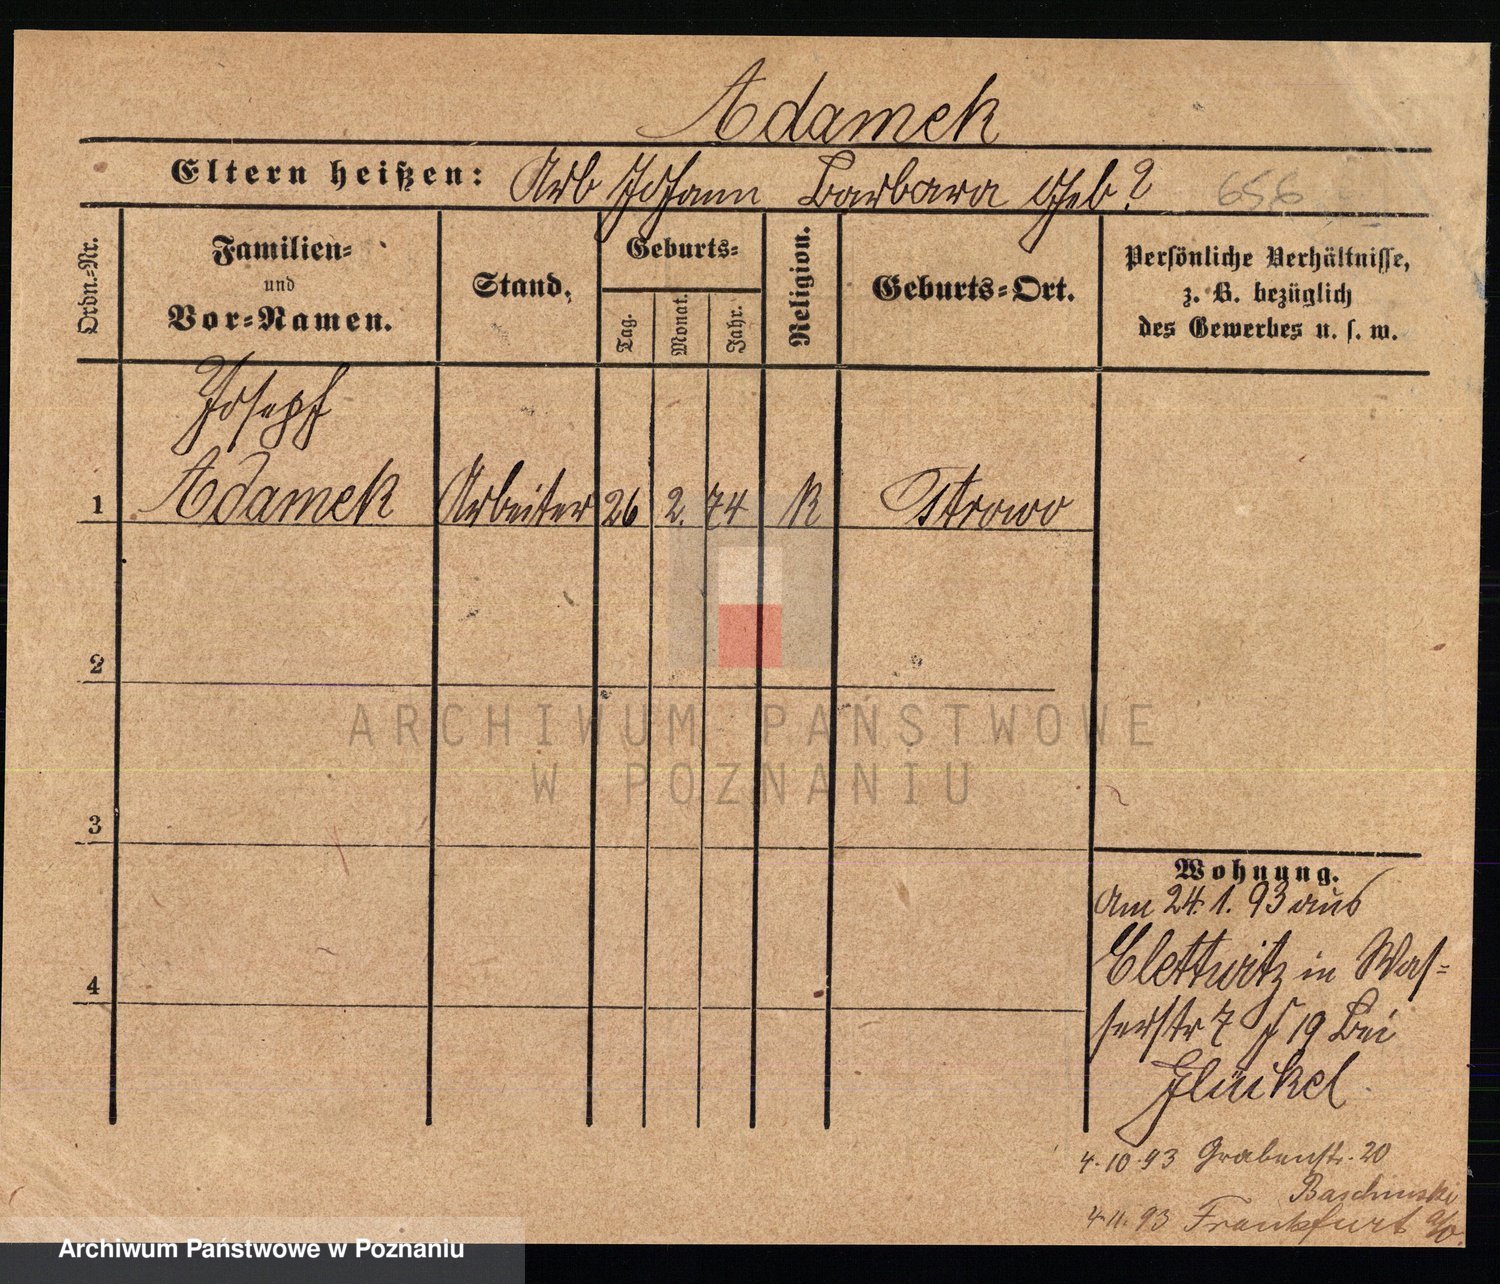 Adamek
Eltern heißen: Arb Johann Barbara Geb?
656
Ordn.-Nr.
Familien-
und
Vor-Namen.
Stand.
Geburts-
Tag.
Monat.
Jahr.
Religion.
Geburts-Ort.
Persönliche Verhältnisse,
z. B. bezüglich
des Gewerbes u. s. w.
Joseph
1 Adamek Arbeiter 26 2. 74 K Ostrowo
2
3
4
ARCHIWUM PAŃSTWOWE
W POZNANIU
Wohnung.
Am 24.1.93 aus
Clettwitz in Was-
serstr 7 19 bei
Glückel
4.10.93 Grabenstr. 20
Baschinski
4.11.93 Frankfurt a/o.
Archiwum Państwowe w Poznaniu